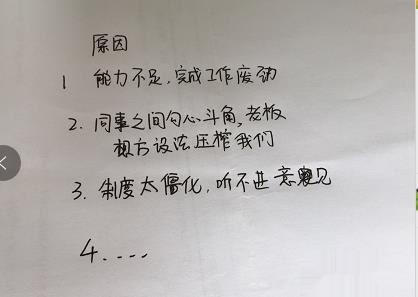 原因
1 能力不足,完成工作废劲
2. 同事之间勾心斗角,老板
想方设法压榨我们
3. 制度太僵化,听不进意见
4. ....